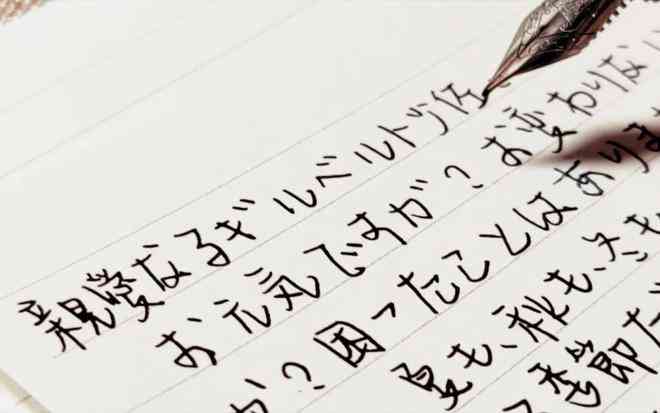 親愛なるギルベルト少佐
お元気ですか?お変わりない
か?困ったことはありま
夏も、秋も、冬も
季節だ